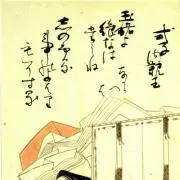 式子内親王
玉の緒よ
絶なは
たえね
なからへは
忍ふる
ことのよはり
もそする